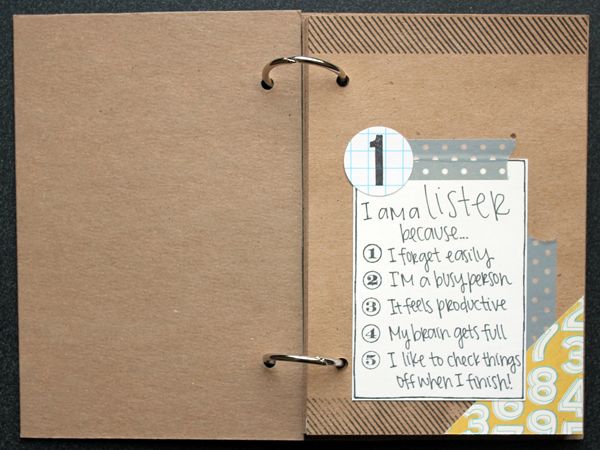 1
I am a lister
because...
1 I forget easily
2 I'm a busy person
3 It feels productive
4 My brain gets full
5 I like to check things
off when I finish!
2
7 3
6 8 4
3 5 9 5